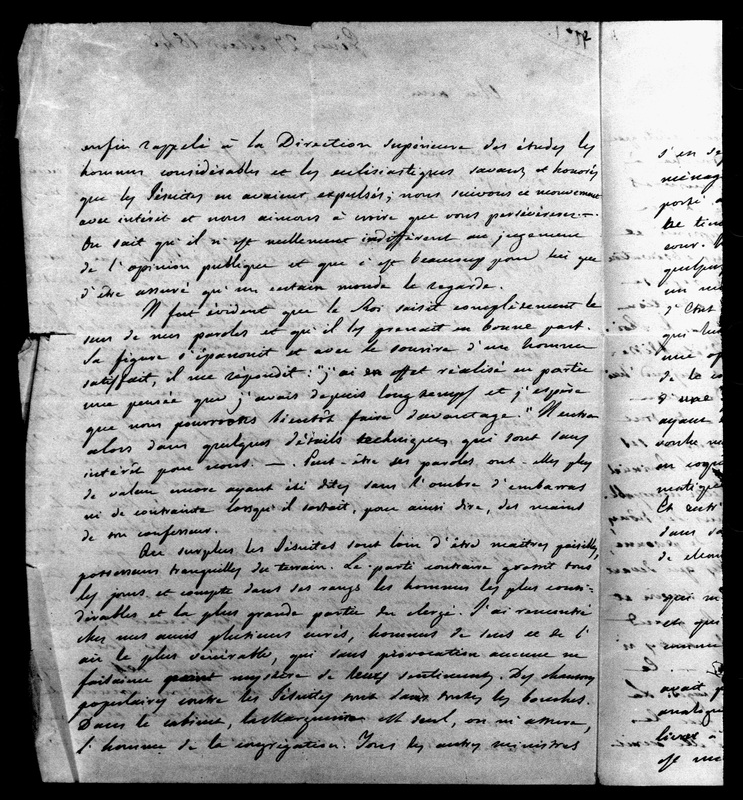 enfin rappelé à la Direction supérieure des études les
hommes considérables et les ecclésiastiques savans et honorés
que les Jésuites en avaient expulsés; nous suivons ce mouvement
avec intérêt et nous aimons à croire que vous persévérerez —.
On sait qu'il n'est nullement indifférent au jugement
de l'opinion publique et que c'est beaucoup pour lui que
d'être assuré qu'un certain monde le regarde.
Il fut évident que le Roi saisit complètement le
sens de mes paroles et qu'il les prenait en bonne part.
Sa figure s'épanouit et avec le sourire d'un homme
satisfait, il me répondit: "j'ai en effet réalisé en partie
une pensée que j'avais depuis longtemps et j'espère
que nous pourrons bientôt faire davantage." Il entra
alors dans quelques détails techniques qui sont sans
intérêt pour nous. — . Peut-être ses paroles ont-elles plus
de valeur encore ayant été dites sans l'ombre d'embarras
ni de contrainte lorsqu'il sortait, pour ainsi dire, des mains
de son confesseur.
Au surplus les Jésuites sont loin d'être maîtres paisibles,
possesseurs tranquilles du terrain. Le parti contraire grossit tous
les jours et compte dans ses rangs les hommes les plus consi-
dérables et la plus grande partie du clergé. J'ai rencontré
chez mes amis plusieurs curés, hommes de sens et de l'
air le plus vénérable, qui sans provocation aucune ne
faisaient point mystère de leurs sentiments. Des chansons
populaires contre les Jésuites sont dans toutes les bouches.
Dans le cabinet, est seul, on m'assure,
l'homme de la congrégation. Tous les autres ministres
s'en
ménag
porté
cour.
quelque
d'état
qui
une op
de la
d'une
ayant
matique
Et
dans
de
qui
et qui
comme
avait p
livres à